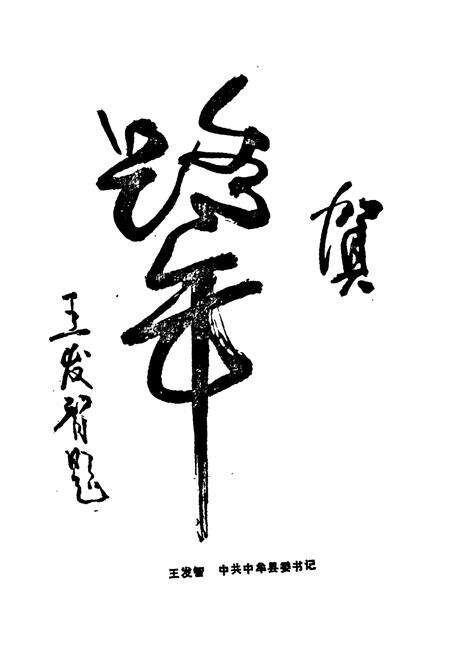 賀
王发智题
王发智 中共中牟县委书记